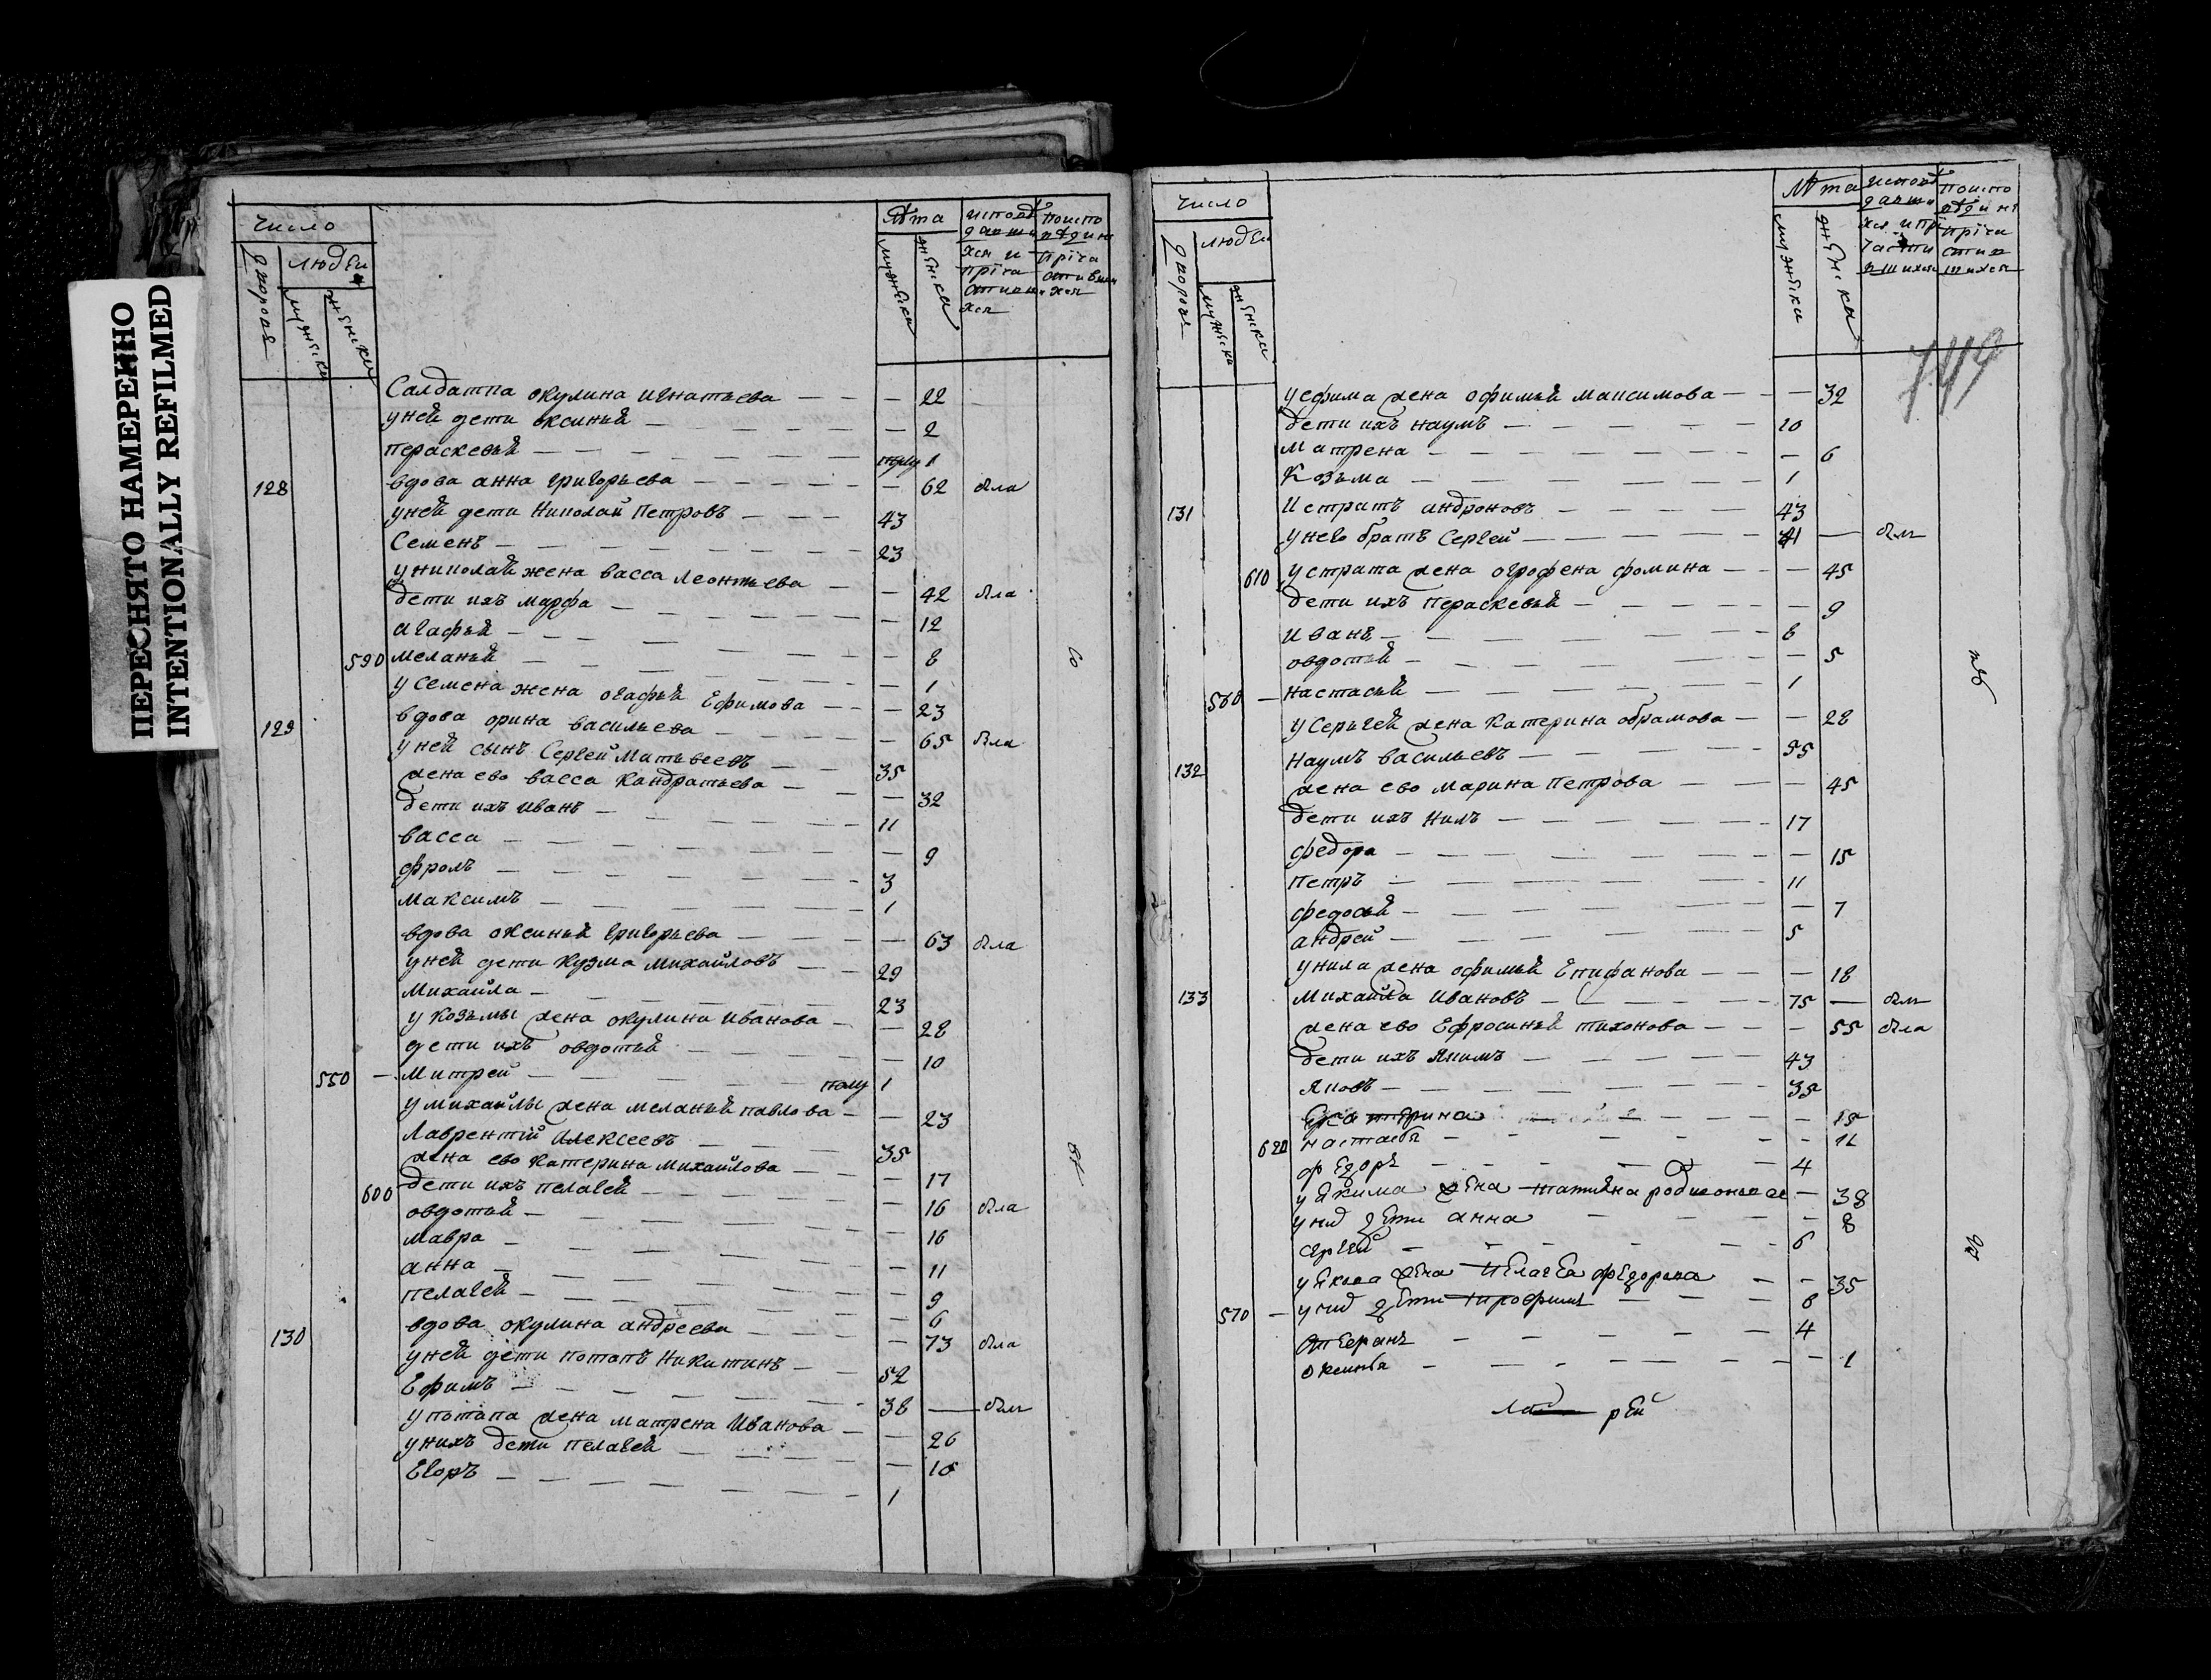 ПЕРЕСНЯТО НАМЕРЕННО
INTENTIONALLY REFILMED
число
людеи
дворовъ
мужеска
женска
лѣта
мужеска
женска
Салдатка окулина игнатьева — — — 22
уней дети оксиньй — — 2
параскевьй — — полу 1
128 вдова анна григорьева — — 62 была
уней дети Николай Петровъ — — 43
Семенъ — — 23
униколай жена васса леонтьева — — 42 была
дети ихъ марфа — — 12
агафьй — — 8
590 меланьй — — 1
у семена жена огафьй Ефимова — — 23
129 вдова орина васильева — — 65 была
уней сынъ Сергей Матьвеевъ — — 35
жена ево васса Кандратьева — — 32
дети ихъ иванъ — — 11
васса — — 9
фролъ — — 3
максимъ — — 1
вдова оксиньй григорьева — — 63 была
уней дети кузма михайловъ — — 29
михайла — — 23
у козьмы жена окулина иванова — — 28
дети ихъ овдотьй — — 10
550 — митрей — — полу 1
у михайлы жена меланьй павлова — — 23
лаврентий алексеевъ — — 35
жена ево катерина михайлова — — 17
600 дети ихъ пелагей — — 16 была
овдотьй — — 16
мавра — — 11
анна — — 9
пелагей — — 6
130 вдова окулина андреева — — 73 была
уней дети потапъ никитинъ — — 52
Ефимъ — — 38 — былъ
у потапа жена матрена иванова — — 26
унихъ дети пелагей — — 16
Егоръ — — 1
со
число
людеи
дворовъ
мужеска
женска
лѣта
мужеска
женска
749
уефима жена офимьй максимова — — 32
дети ихъ наумъ — — 10
матрена — — 6
Козьма — — 1
131 истратъ андроновъ — — 43
унего братъ Сергей — — 41 — былъ
610 устрата жена огрофена фомина — — 45
дети ихъ параскевьй — — 9
иванъ — — 6
овдотьй — — 5
560 — настасьй — — 1
у Серьгей жена катерина обрамова — — 28
132 наумъ васильевъ — — 55
жена ево марина петрова — — 45
дети ихъ нилъ — — 17
федора — — 15
петръ — — 11
федосьй — — 7
андрей — — 5
унила жена офимьй Епифанова — — 18
133 михайла ивановъ — — 75 — былъ
жена ево Ефросиньй тихонова — — 55 была
дети ихъ Якимъ — — 43
Яковъ — — 35
Екатерина — — 15
620 настасья — — 11
федоръ — — 4
у Якима жена татияна родионова — 38
у них дети анна — — 8
сергей — — 6
у Якова жена пелагея федорова — — 35
570 — у них дети трофимъ — — 6
— — 4
оксинья — — 1
рей